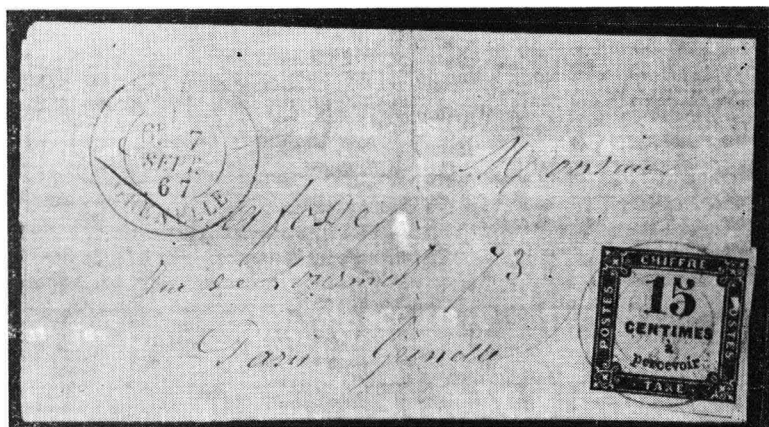 6E 7
SEPT.
67
GRENELLE
Monsieur
Lafosse
rue de Lourmel 73
Paris Grenelle
CHIFFRE
POSTES
15
CENTIMES
à
percevoir
POSTES
TAXE